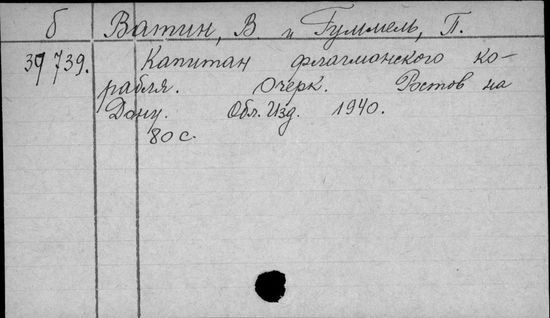 б Ватин, В. и Гуммель, П.
39739. Капитан флагманского ко-
рабля. Очерк. Ростов на
Дону. Обл. Изд. 1940.
80 с.